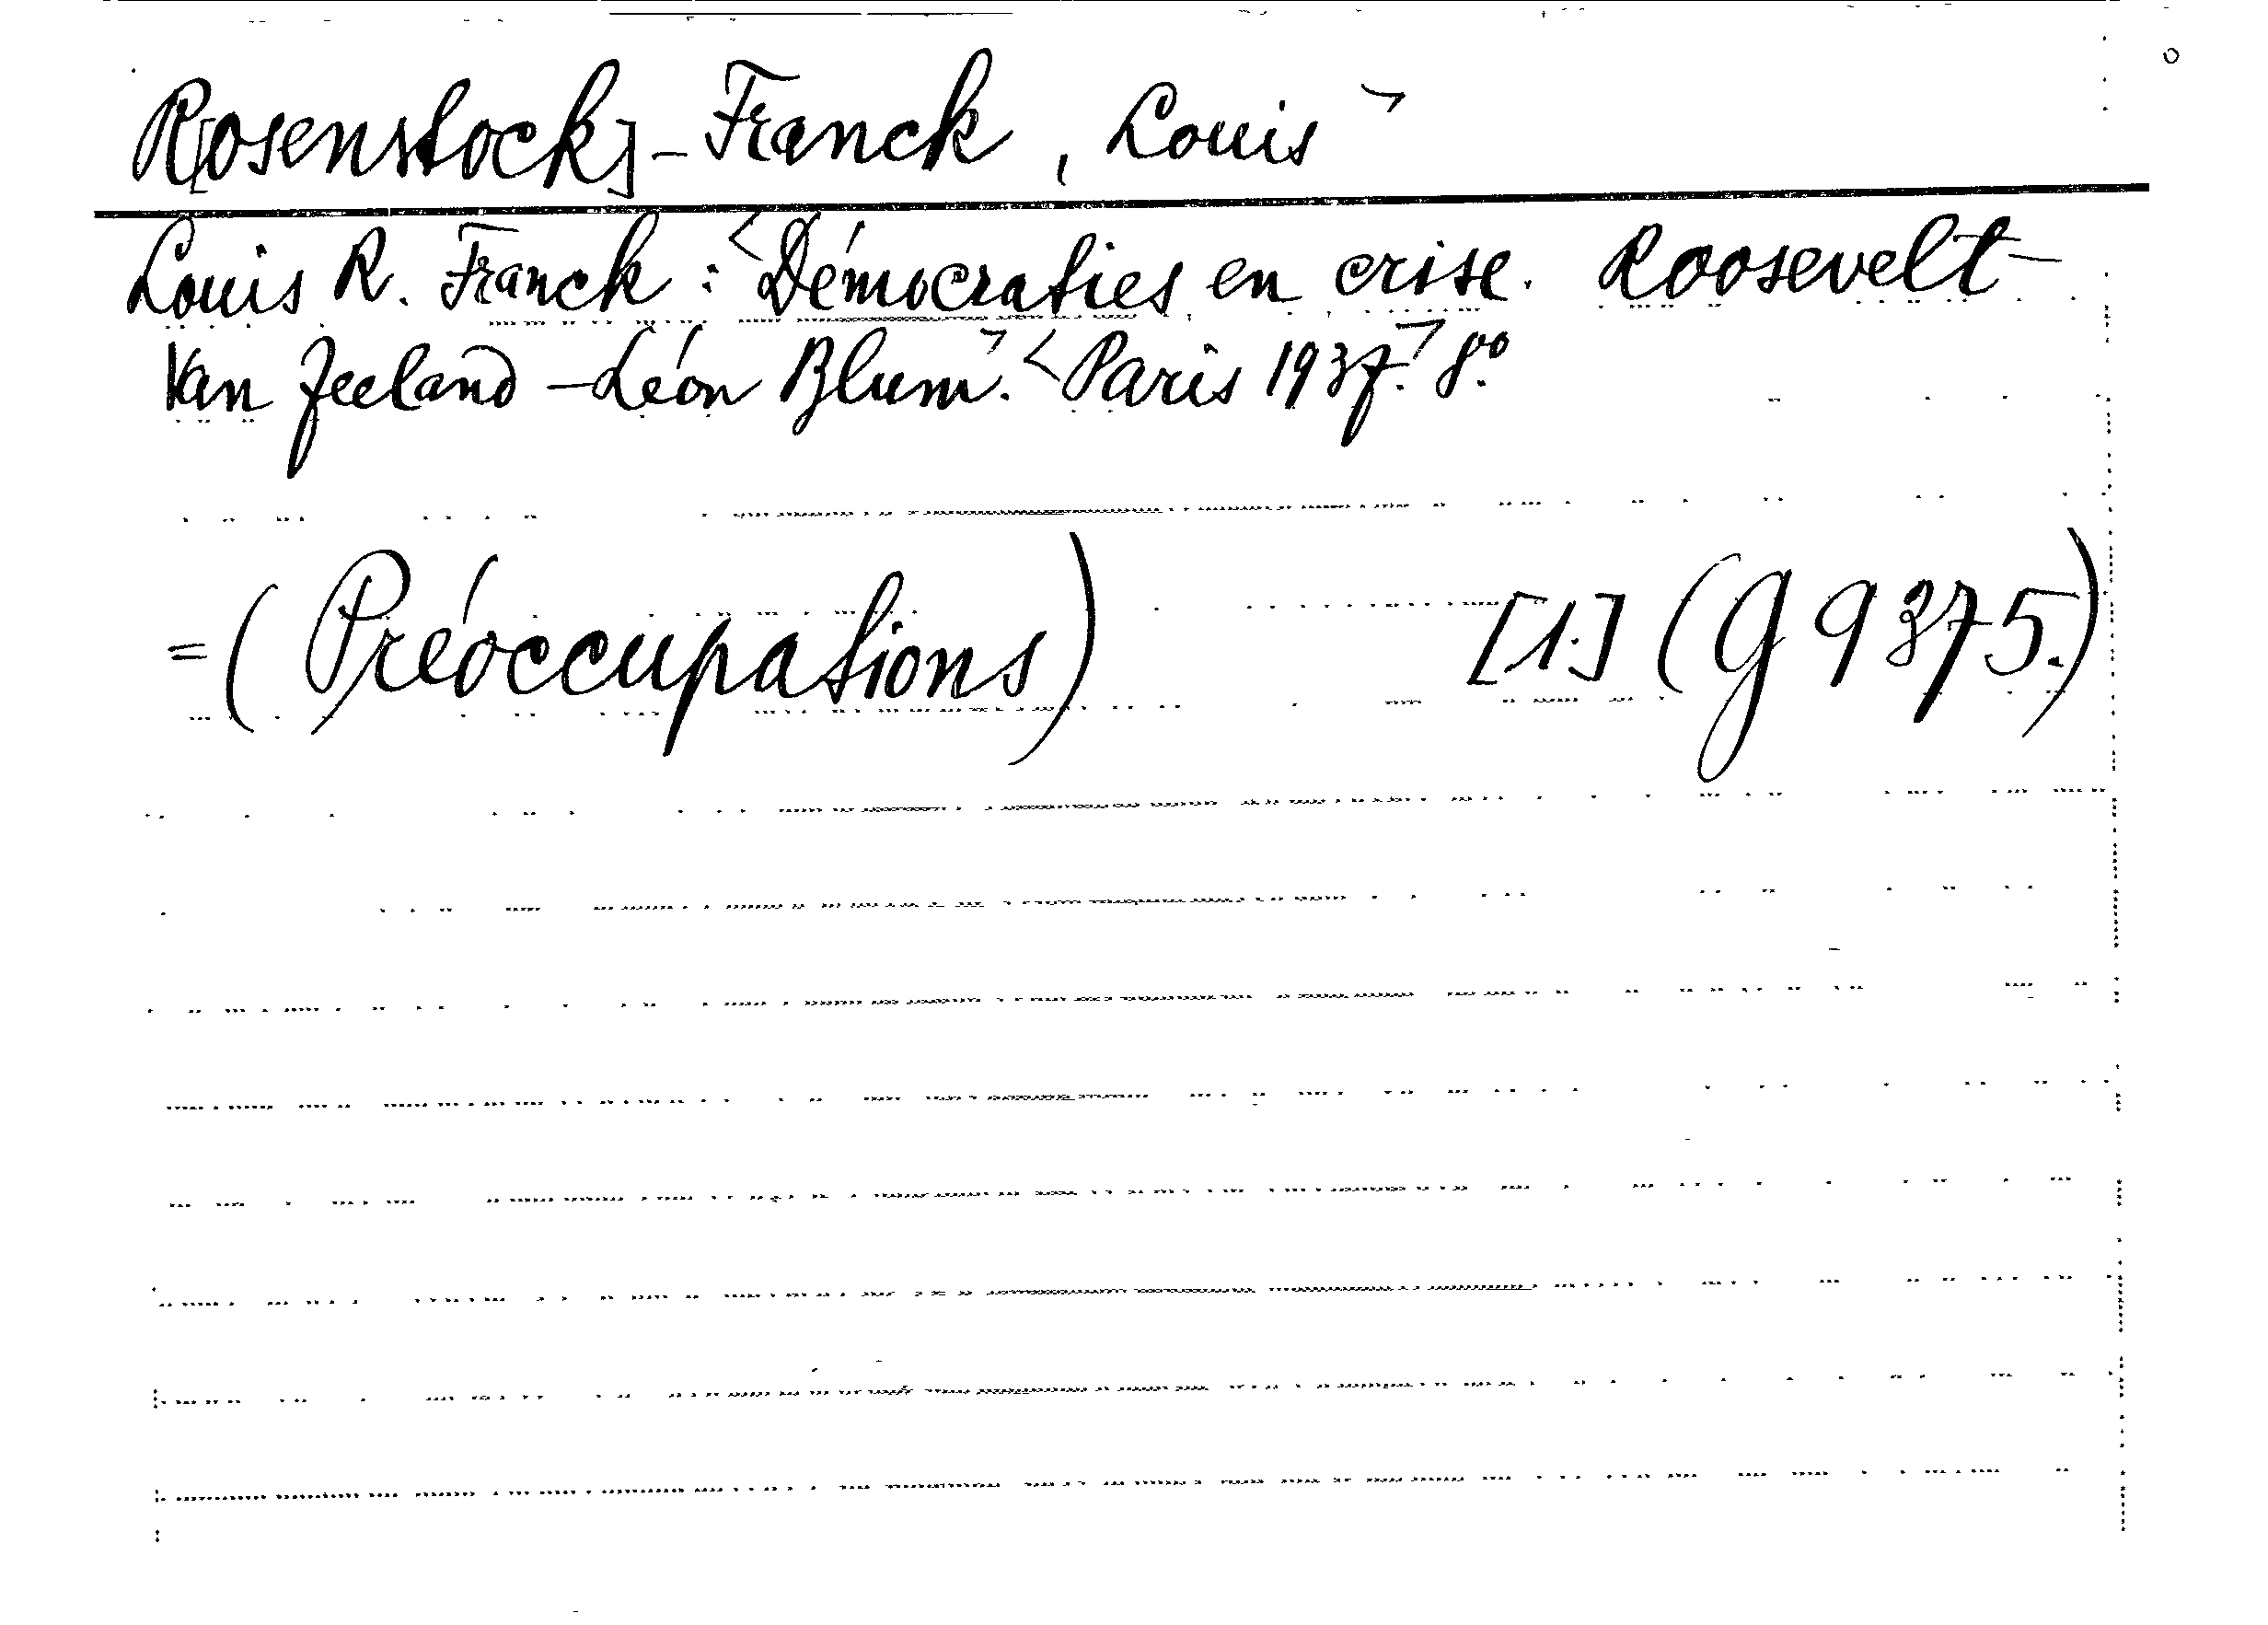 R[osenstock]-Franck, Louis
Louis R. Franck: Démocraties en crise. Roosevelt-
Van Zeeland-Léon Blum. Paris 1937. 8°.
=(Préoccupations) [1.] (G 9375.)